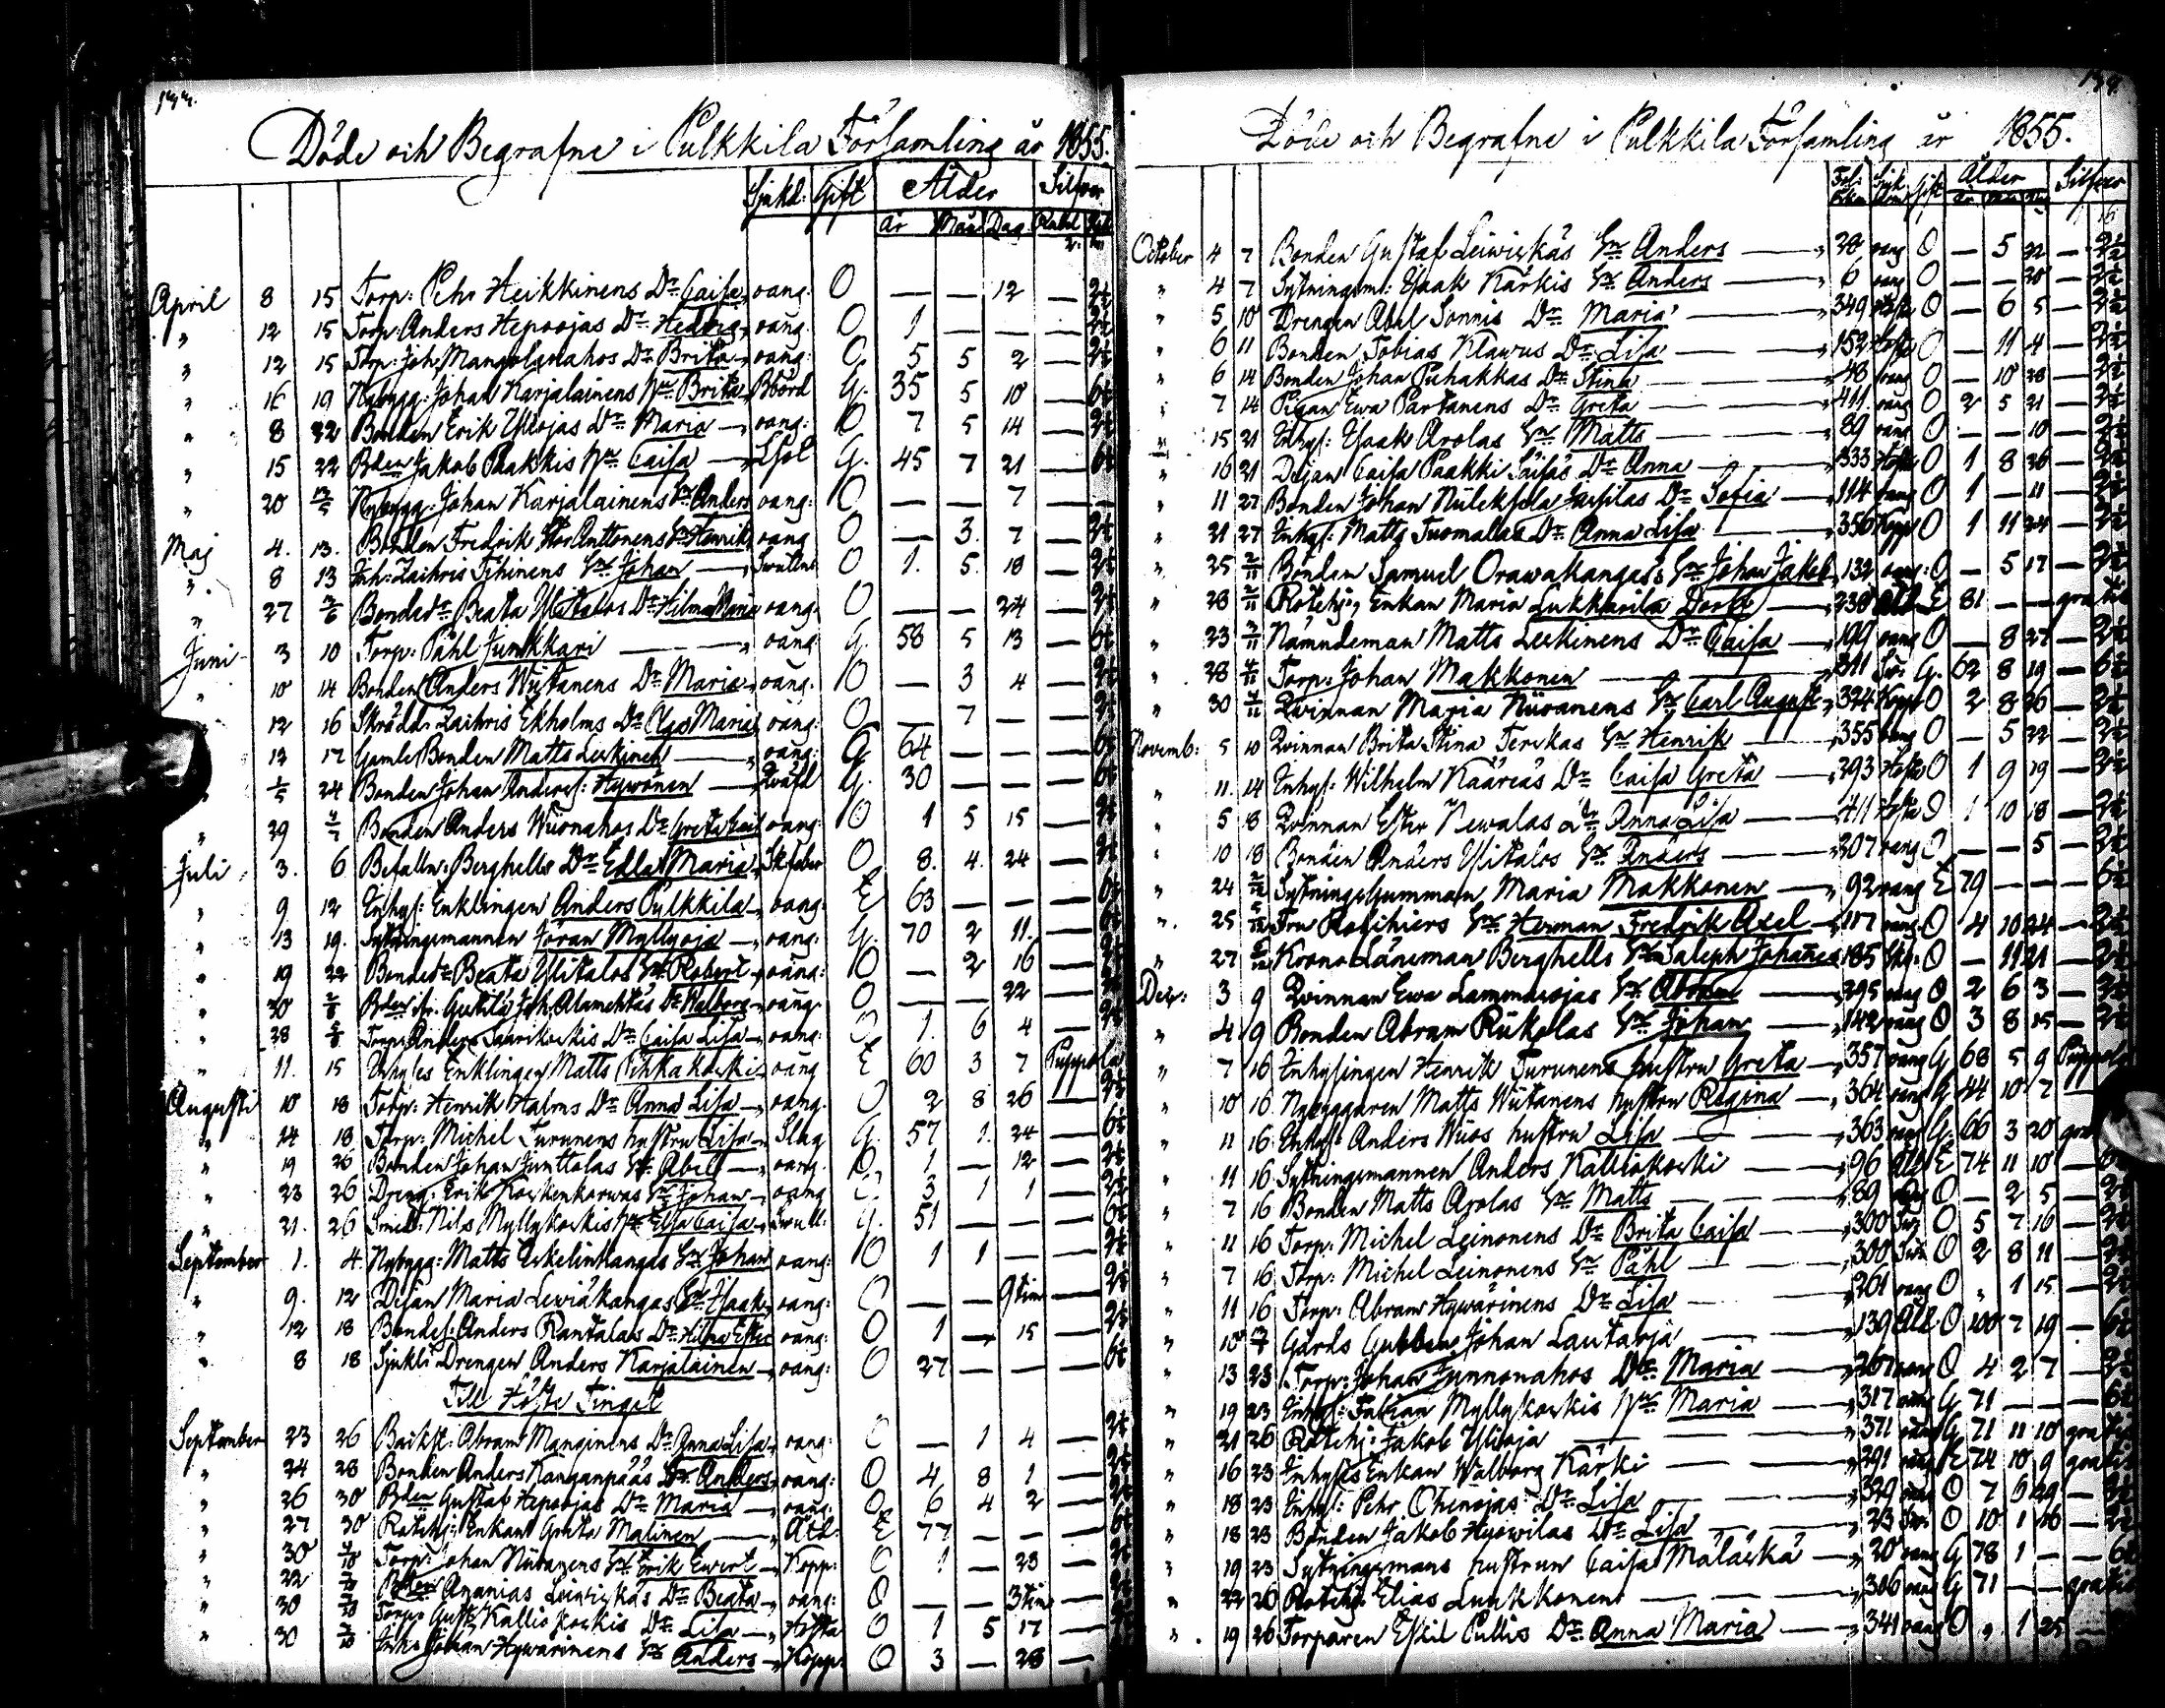 Döde och Begrafne i Pulkkila Församling år 1855.
Sjukd: Gift Ålder Silfver
år Mån Dag Rubel
April 8 15 Torp: Pehr Heikkinens Dr Caisa oang: O — — 12 — 2½
" 12 15 Torp: Anders Hepoojas Dr Hedvig oang: O 1 — — — 2½
" 12 15 Torp: Joh: Dr Brita oang: O 5 5 2 — 2½
" 16 19 Nybygg: Johan Karjalainens Hu Brita Bbörd G. 35 5 10 — 6½
" 8 22 Bonden Erik Yliojas Dr Maria oang: O 7 5 14 — 2½
" 15 22 Bden Jakob Paakkis Hu Caisa G. 45 7 21 — 6½
" 20 Nybygg: Johan Karjalainens Sn Anders oang: O — — 7 —
Maj 4. 13. Bonden Fredrik Anttonens Sn Henrik oang O — 3. 7 — 2½
" 8 13 Inh: Zachris Tihinens Sn Johan O 1. 5. 18 — 2½
" 27 3/6 Bondedr Beata Ylitalos Dr Hilma Maria oang: O — — 24 — 2½
Juni 3 10 Torp: Påhl Junkkari oang: G. 58 5 13 — 6½
" 10 14 Bonden Anders Wiitanens Dr Maria oang: O — 3 4 — 2½
12 16 Skrädd: Zachris Ekholms Dr Maria oang: O — 7 — — 2½
13 17 Gamle Bonden Matts Leskinen oang: G 64 — — — 6½
24 Bonden Johan Anderss: Hyvönen G. 30 — — — 6½
" 29 Bonden Anders Wiionahos Dr Greta Cais oang: O 1 5 15 — 2½
Juli 3. 6 Befallm: Berghells Dr Edla Maria O. 8. 4. 24 — 2½
" 9 12 Inhys: Enklingen Anders Pulkkila oang: E 63 — — — 6½
" 13 19. Sytningsmannen Jöran Myllyoja oang: G. 70 2 11. — 6½
" 19 22 Bondedr Beata Ylitalos Sn Robert oang: O — 2 16 — 2½
" 30 Bden Joh: Alamehtäs Dr Walborg oang: O — — 22 — 2½
" 28 Torp: Anders Saarikoskis Dr Caisa Lisa oang: O 1. 6 4 — 2½
" 11. 15 Inhyses Enklingen Matts Pihkakoski oang E 60 3 7 Pippola
Augusti 10 18 Torp: Henrik Halms Dr Anna Lisa oang. O 2 8 26 — 2½
" 14 18 Torp: Michel Turunens hustru Lisa Slag G. 57 1. 24 — 6½
" 19 26 Bonden Johan Junttolas Sn Abel oang. O. 1 — 12 — 2½
" 23 26 Dreng: Erik Koskenkorwas Sn Johan oang O. 3 1 1 — 2½
" 21. 26 Smed: Nils Myllykoskis Hu Elsa Caisa G. 51 — — — 6½
September 1. 4. Nybygg: Matts Eskelinkangas Sn Johan oang: O 1 1 — — 2½
" 9. 12 Pigan Maria Leviäkangas Sn Isaak oang: O — — 9 tim — 2½
" 12 18 Bondes: Anders Rantalas Dr Hilma Ester oang: O 1 — 15 — 2½
" 8 18 Sjukli: Drengen Anders Karjalainen oang: O 27 — — — 6½
Till Höste Tinget
September 23 26 Backst: Abram Manginens Dr Anna Lisa oang: O — 1 4 — 2½
" 24 28 Bonden Anders Kanganpääs Sn Anders oang: O 4 8 1 — 2½
" 26 30 Bden Gustaf Hepoojas Dr Maria oang: O 6 4 2 — 2½
" 27 30 Rotehj: Enkan Greta Malinen Åld: E 77 — — — 6½
" 30 Torp: Johan Niiranens Sn Erik Evert Kopp: O 1 — 23 — 2½
" 22 Bden Ananias Leiviskäs Dr Beata oang: O — — 3 tim —
" 30 Torp: Gust: Kallio koskis Dr Lisa Hosta O 1 5 17 —
" 30 Inh: Johan Hyvärinens Sn Anders Kopp: O 3 — 28 —
Döde och Begrafne i Pulkkila Församling år 1855.
Gift Ålder Silfver
October 4 7 Bonden Gustaf Leiviskäs Sn Anders 20 oang O — 5 22 — 2½
" 4 7 Sytningsm: Isaak Kärkis Sn Anders 6 oang O — — 20 — 2½
" 5 10 Drengen Abel Sonnis Dr Maria 349 Hosta O — 6 5 — 2½
" 6 11 Bonden Tobias Klawus Dr Lisa 152 Hosta O — 11 4 — 2½
" 6 14 Bonden Johan Puhakkas Dr Stina 48 oang O — 10 28 — 2½
" 7 14 Pigan Ewa Partanens Dr Greta 411 oang O 2 5 21 — 2½
" 15 21 Inhys: Isaak Arolas Sn Matts 89 oang O — — 10 — 2½
" 16 21 Pigan Caisa Paakki Dr Anna 333 Hosta O 1 8 26 — 2½
" 11 27 Bonden Johan Dr Sofia 114 oang O 1 — 11 — 2½
" 21 27 Inhys: Matts Tuomalas Dr Anna Lisa 356 Kopp O 1 11 24 — 2½
" 25 2/11 Bonden Samuel Orawakangas Sn Johan Jakob 132 oang: O — 5 17 — 2½
" 28 2/11 Rotehj: Enkan Maria Lukkarila 238 Åld E 81 — — gratis
" 23 Nämndeman Matts Leskinens Dr Caisa 199 oang O — 8 27 — 2½
" 28 4/11 Torp: Johan Makkonen 311 G. 62 8 19 — 6½
" 30 4/11 Qvinnan Maria Niiranens Sn Carl August 324 Kopp O 2 8 26 — 2½
Novemb: 5 10 Qvinnan Brita Stina Terskas Sn Henrik 355 oang O — 5 22 — 2½
" 11. 14 Inhys: Wilhelm Kääriäs Dr Caisa Greta 293 Hosta O 1 9 19 — 2½
" 5 18 Qvinnan Ester Newalas Dr Anna Lisa 411 Hosta O 1 10 18 — 2½
" 10 18 Bonden Anders Ylitalos Sn Anders 307 oang O — — 5 — 2½
" 24 2/12 Sytnings Gumman Maria Makkonen 92 oang E 79 — — — 6½
" 25 Sn Herman Fredrik Axel 117 oang O 4 10 24 — 2½
" 27 Krono Länsman Berghells Sn Johannes 185 O — 11 21 — 2½
Decr: 3 9 Qvinnan Ewa Lammasojas Sn Abram 295 oang O 2 6 3 — 2½
" 4 9 Bonden Abram Riikolas Sn Johan 142 oang O 3 8 15 — 2½
" 7 16 Inhysingen Henrik Turunens hustru Greta 357 oang G 68 5 9 Pippola
" 10 16. Nybyggaren Matts Wiitanens hustru Regina 364 oang G 44 10 7 —
" 11 16. Inhys: Anders Wiios hustru Lisa 363 oang G. 66 3 20
" 11 16. Sytningsmannen Anders Kalliokoski 96 Åld E 74 11 10 — 6½
" 7 16 Bonden Matts Arolas Sn Matts 89 oang O — 2 5 — 2½
" 11 16 Torp: Michel Leinonens Dr Brita Caisa 300 O 5 7 16 — 2½
" 7 16. Torp: Michel Leinonens Sn Påhl 300 O 2 8 11 — 2½
" 11 16. Torp: Abram Hyvärinens Dr Lisa 261 oang O " 1 15 — 2½
" 10 Gårds Gubben Johan Lautaoja 139 Åld. O 100 7 19 — 6½
" 13 23 Torp: Johan Junnonahos Dr Maria 267 oang O 4 2 7 — 2½
" 19 23 Inhys: Fabian Myllykoskis Hu Maria 317 oang G 71 — — — 6½
" 21 26 Rotehj: Jakob Ylioja 371 oang G 71 11 10 gratis
" 16 23 Inhyses Enkan Walborg Kärki 291 oang E 74 10 9 gratis
" 18 23 Inhys: Pehr Ohenojas Dr Lisa 329 oang O 7 5 29 — 2½
" 18 23 Bonden Jakob Hyvvilas Dr Lisa 23 O 10 1 16 — 2½
" 19 23 Sytningsmans hustrun Caisa Mälaskä 20 oang G 78 1 — — 6½
" 22 26 Rotehj: Elias Luukkonen 306 oang G 71 — — gratis
" 19 26 Torparen Eskil Pullis Dr Anna Maria 341 oang O " 1 25 —